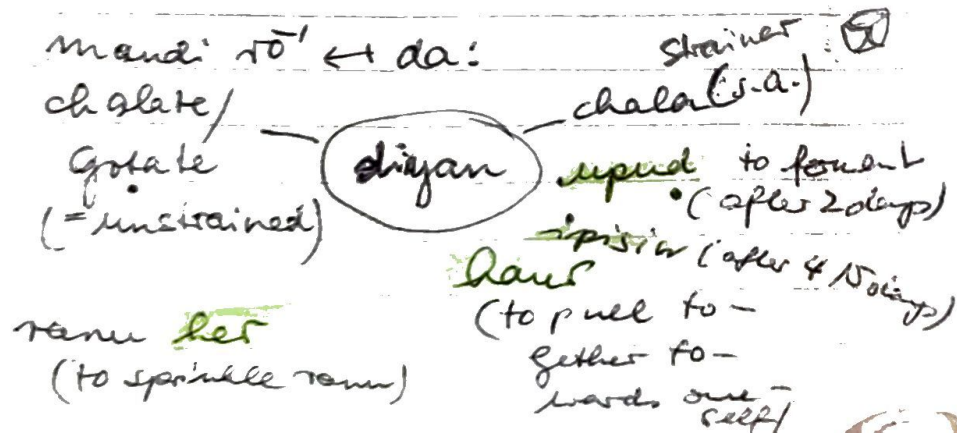 mandi rō' ↔ da:
strainer
chalate/
chala (s.a.)
Gotate
(= unstrained)
diyan
upuḍ to ferment
(after 2 days)
ipisin (after 4/5 days)
haur
(to pull to-
gether to-
wards one-
self)
ranu her
(to sprinkle ranu)